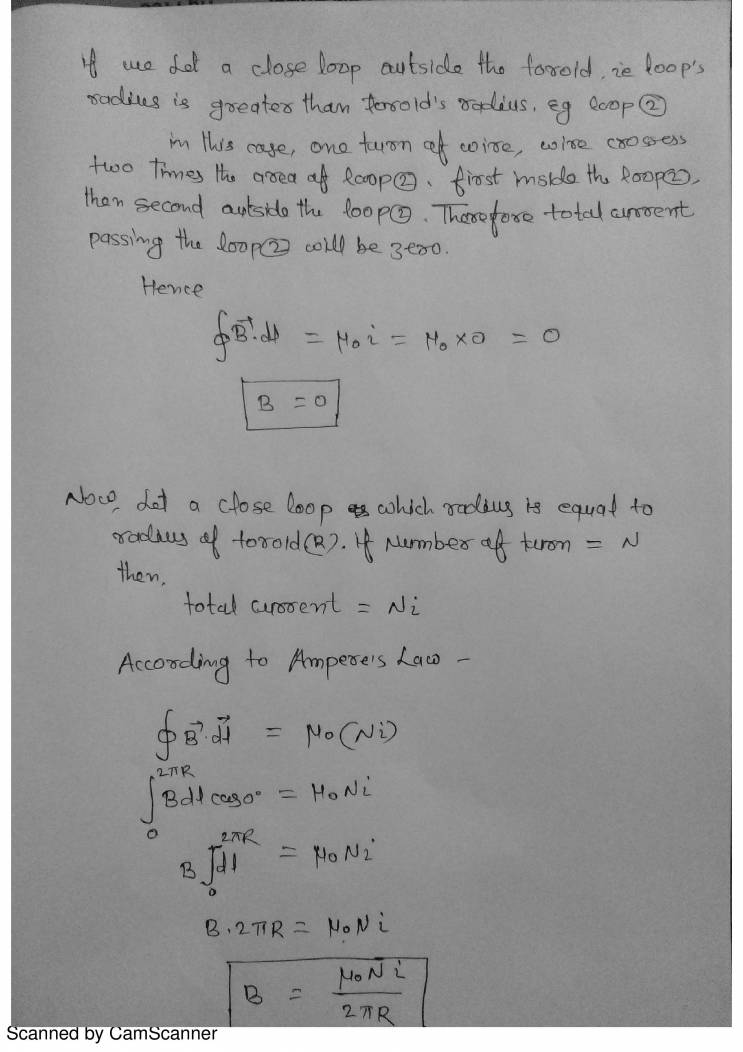 If we let a close loop outside the toroid, ie loop's
radius is greater than toroid's radius. eg loop ②
in this case, one turn of wire, wire crossess
two Times the area of loop ②. first inside the loop ②,
then second outside the loop ②. Therefore total current
passing the loop ② will be zero.
Hence
∮B⃗.dl = μ₀i = μ₀×0 = 0
B = 0
Now, Let a close loop which radius is equal to
radius of toroid (R). If Number of turn = N
then,
total current = Ni
According to Ampere's Law –
∮B⃗.dl⃗ = μ₀(Ni)
∫₀^2πR Bdl cos0° = μ₀Ni
B ∫₀^2πR dl = μ₀Ni
B.2πR = μ₀Ni
B = μ₀Ni / 2πR
Scanned by CamScanner